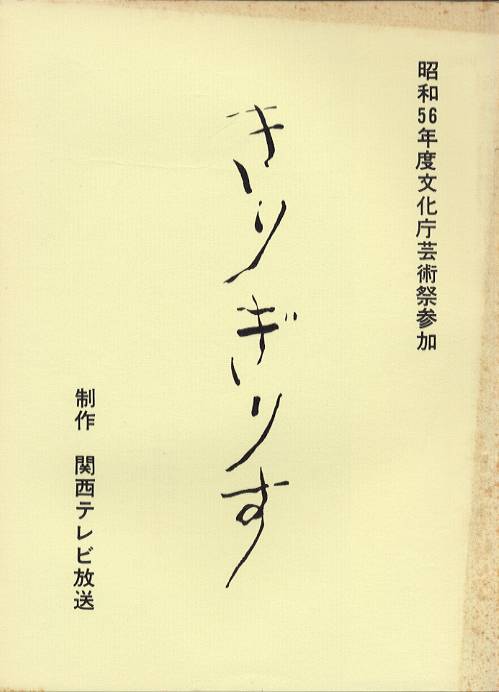 昭和56年度文化庁芸術祭参加
きりぎりす
制作　関西テレビ放送